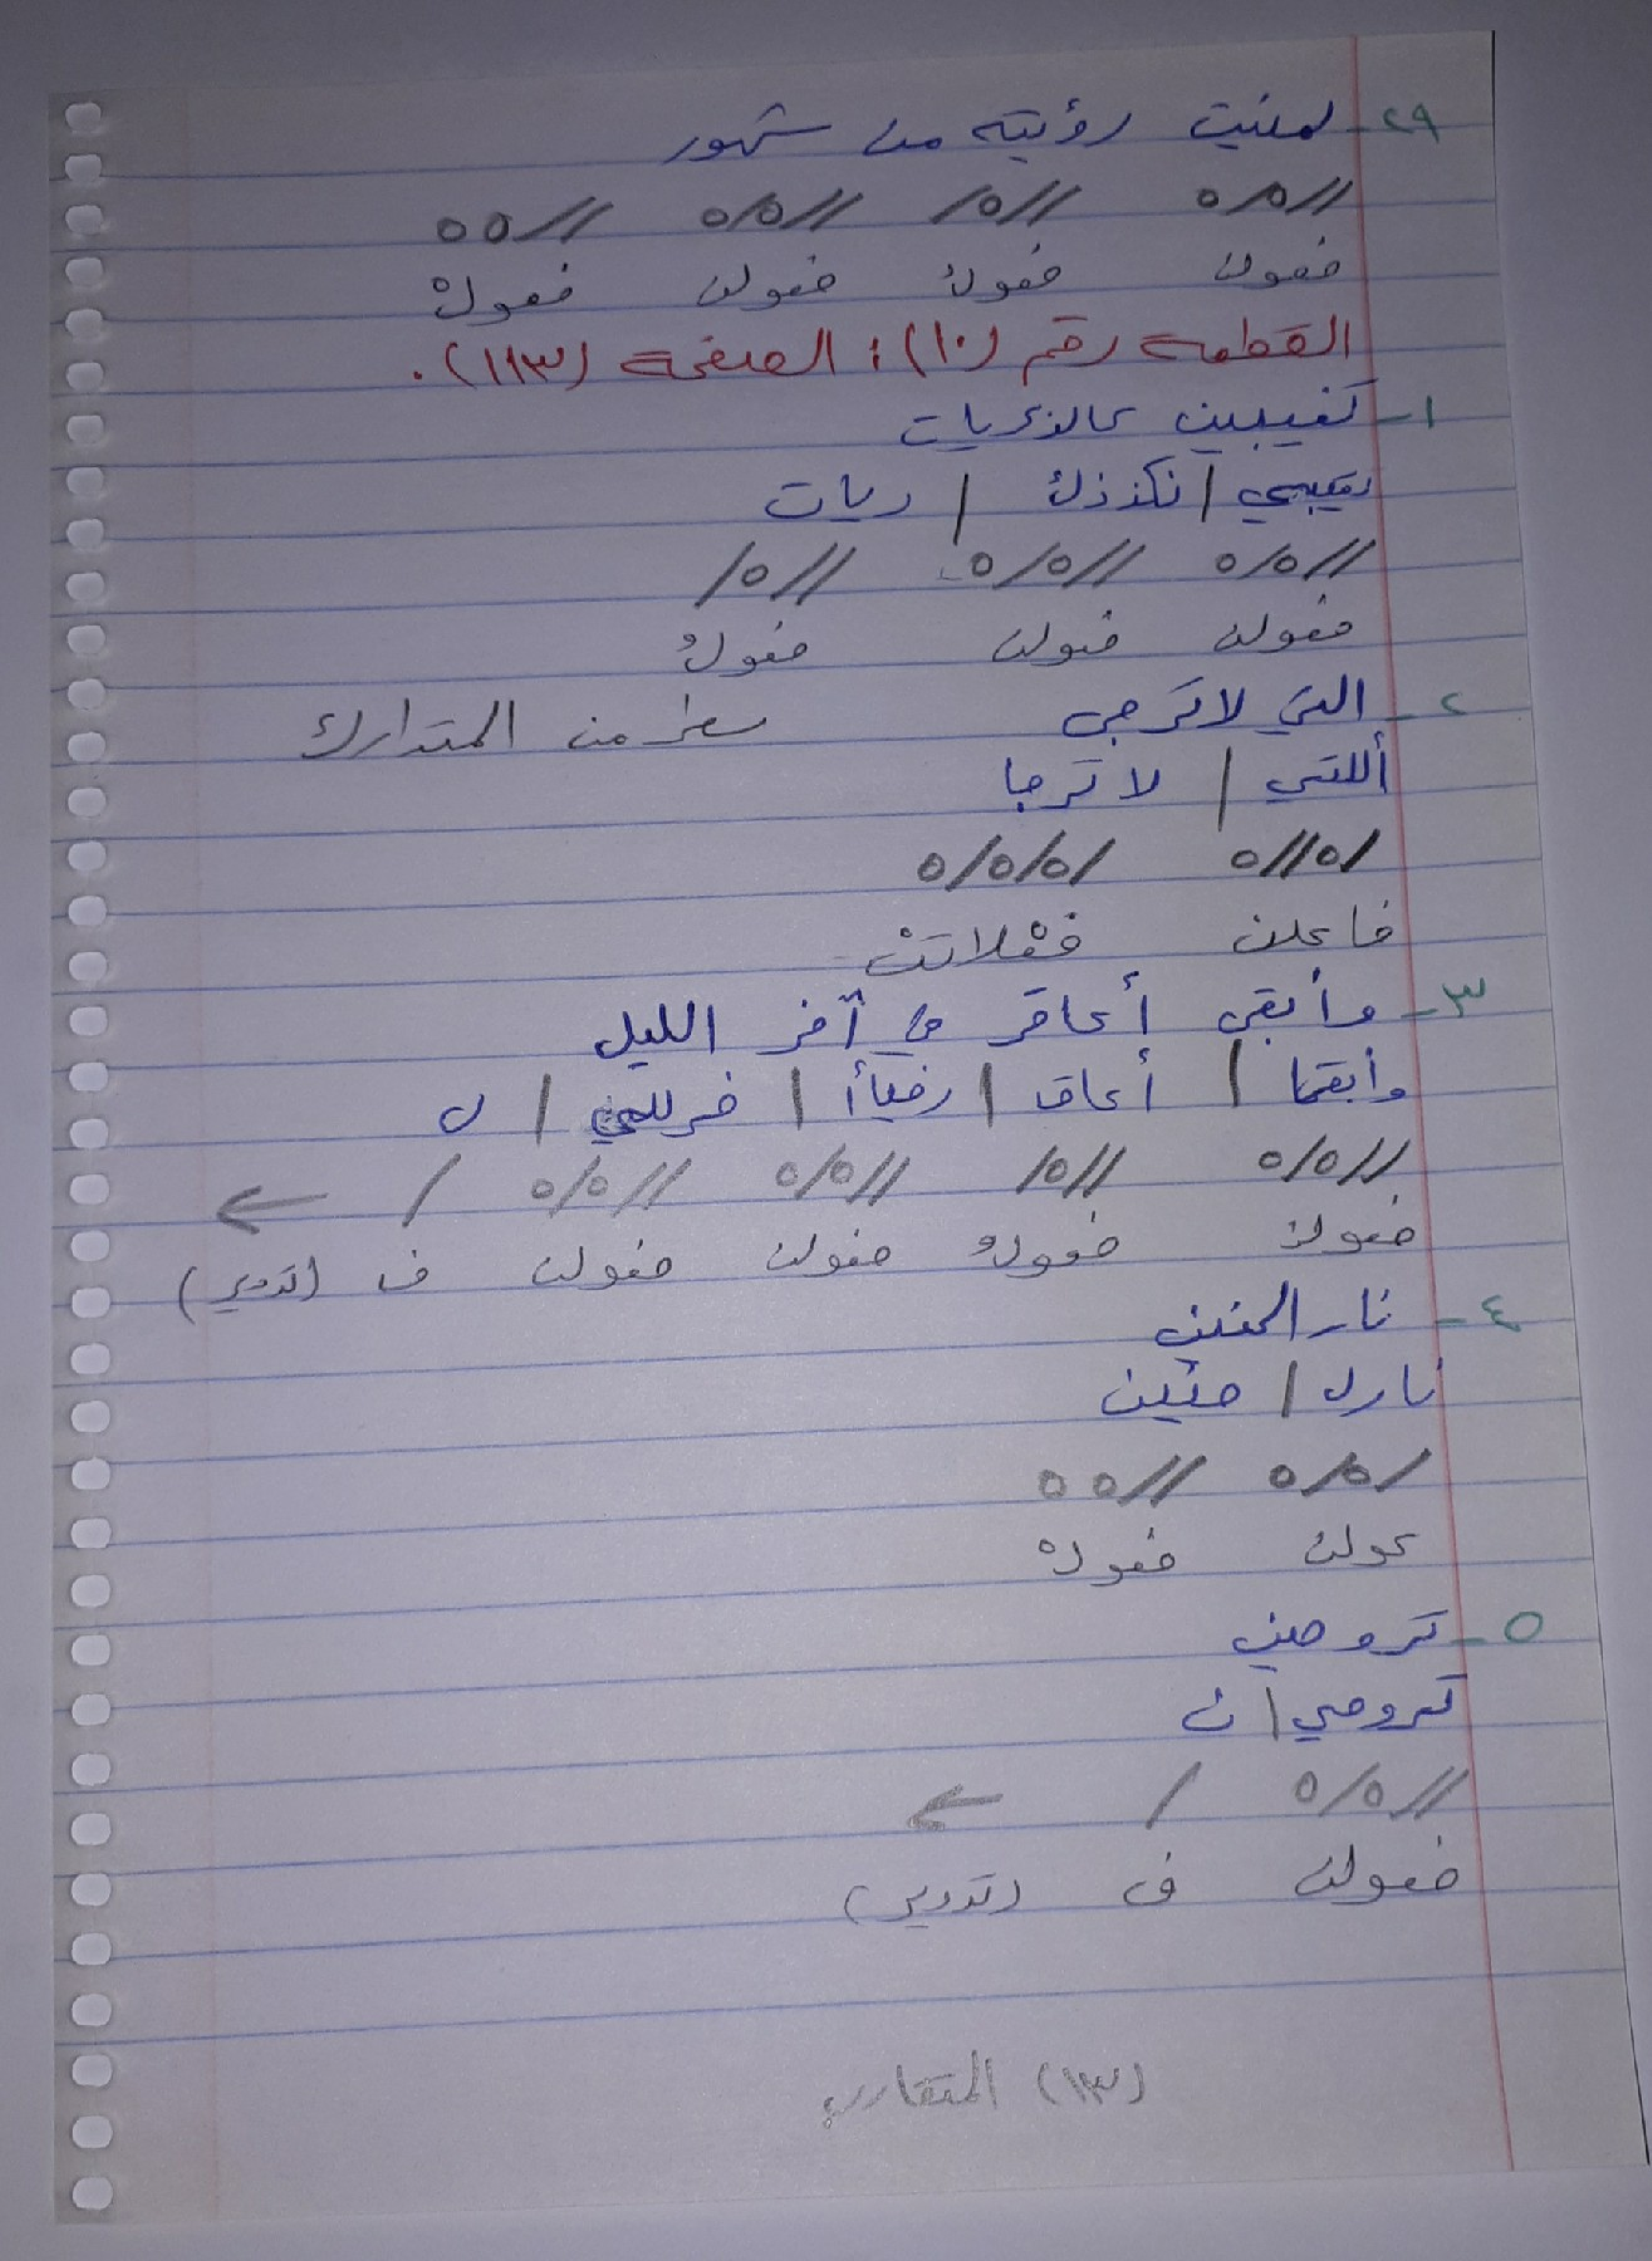 ٢٩- لمنيت رؤيته من شهور
//٥/٥ //٥/ //٥/٥ //٥٥
فعولن فعولُ فعولن فعولْ
القطعة رقم (١٠)؛ الصفحة (١١٣).
١- تغيبين كالذكريات
تغيبي / نكذذك / ريات
//٥/٥ //٥/٥ //٥/
فعولن فعولن فعولُ
٢- التي لا ترجى سطر من المتدارك
أللتي / لا ترجا
/٥//٥ /٥/٥/٥
فاعلن فعْلاتنْ
٣- وأبقى أعاقر في آخر الليل
وأبقا / أعاق / رفيأا / خرللي / ل
//٥/٥ //٥/ //٥/٥ //٥/٥ / ←
فعولن فعولُ فعولن فعولن ف (تدوير)
٤- نار الحنين
نارل / حنين
/٥/٥ //٥٥
عولن فعولْ
٥- تروحين
تروحي / ن
//٥/٥ / ←
فعولن ف (تدوير)
(١٣) المتقارب